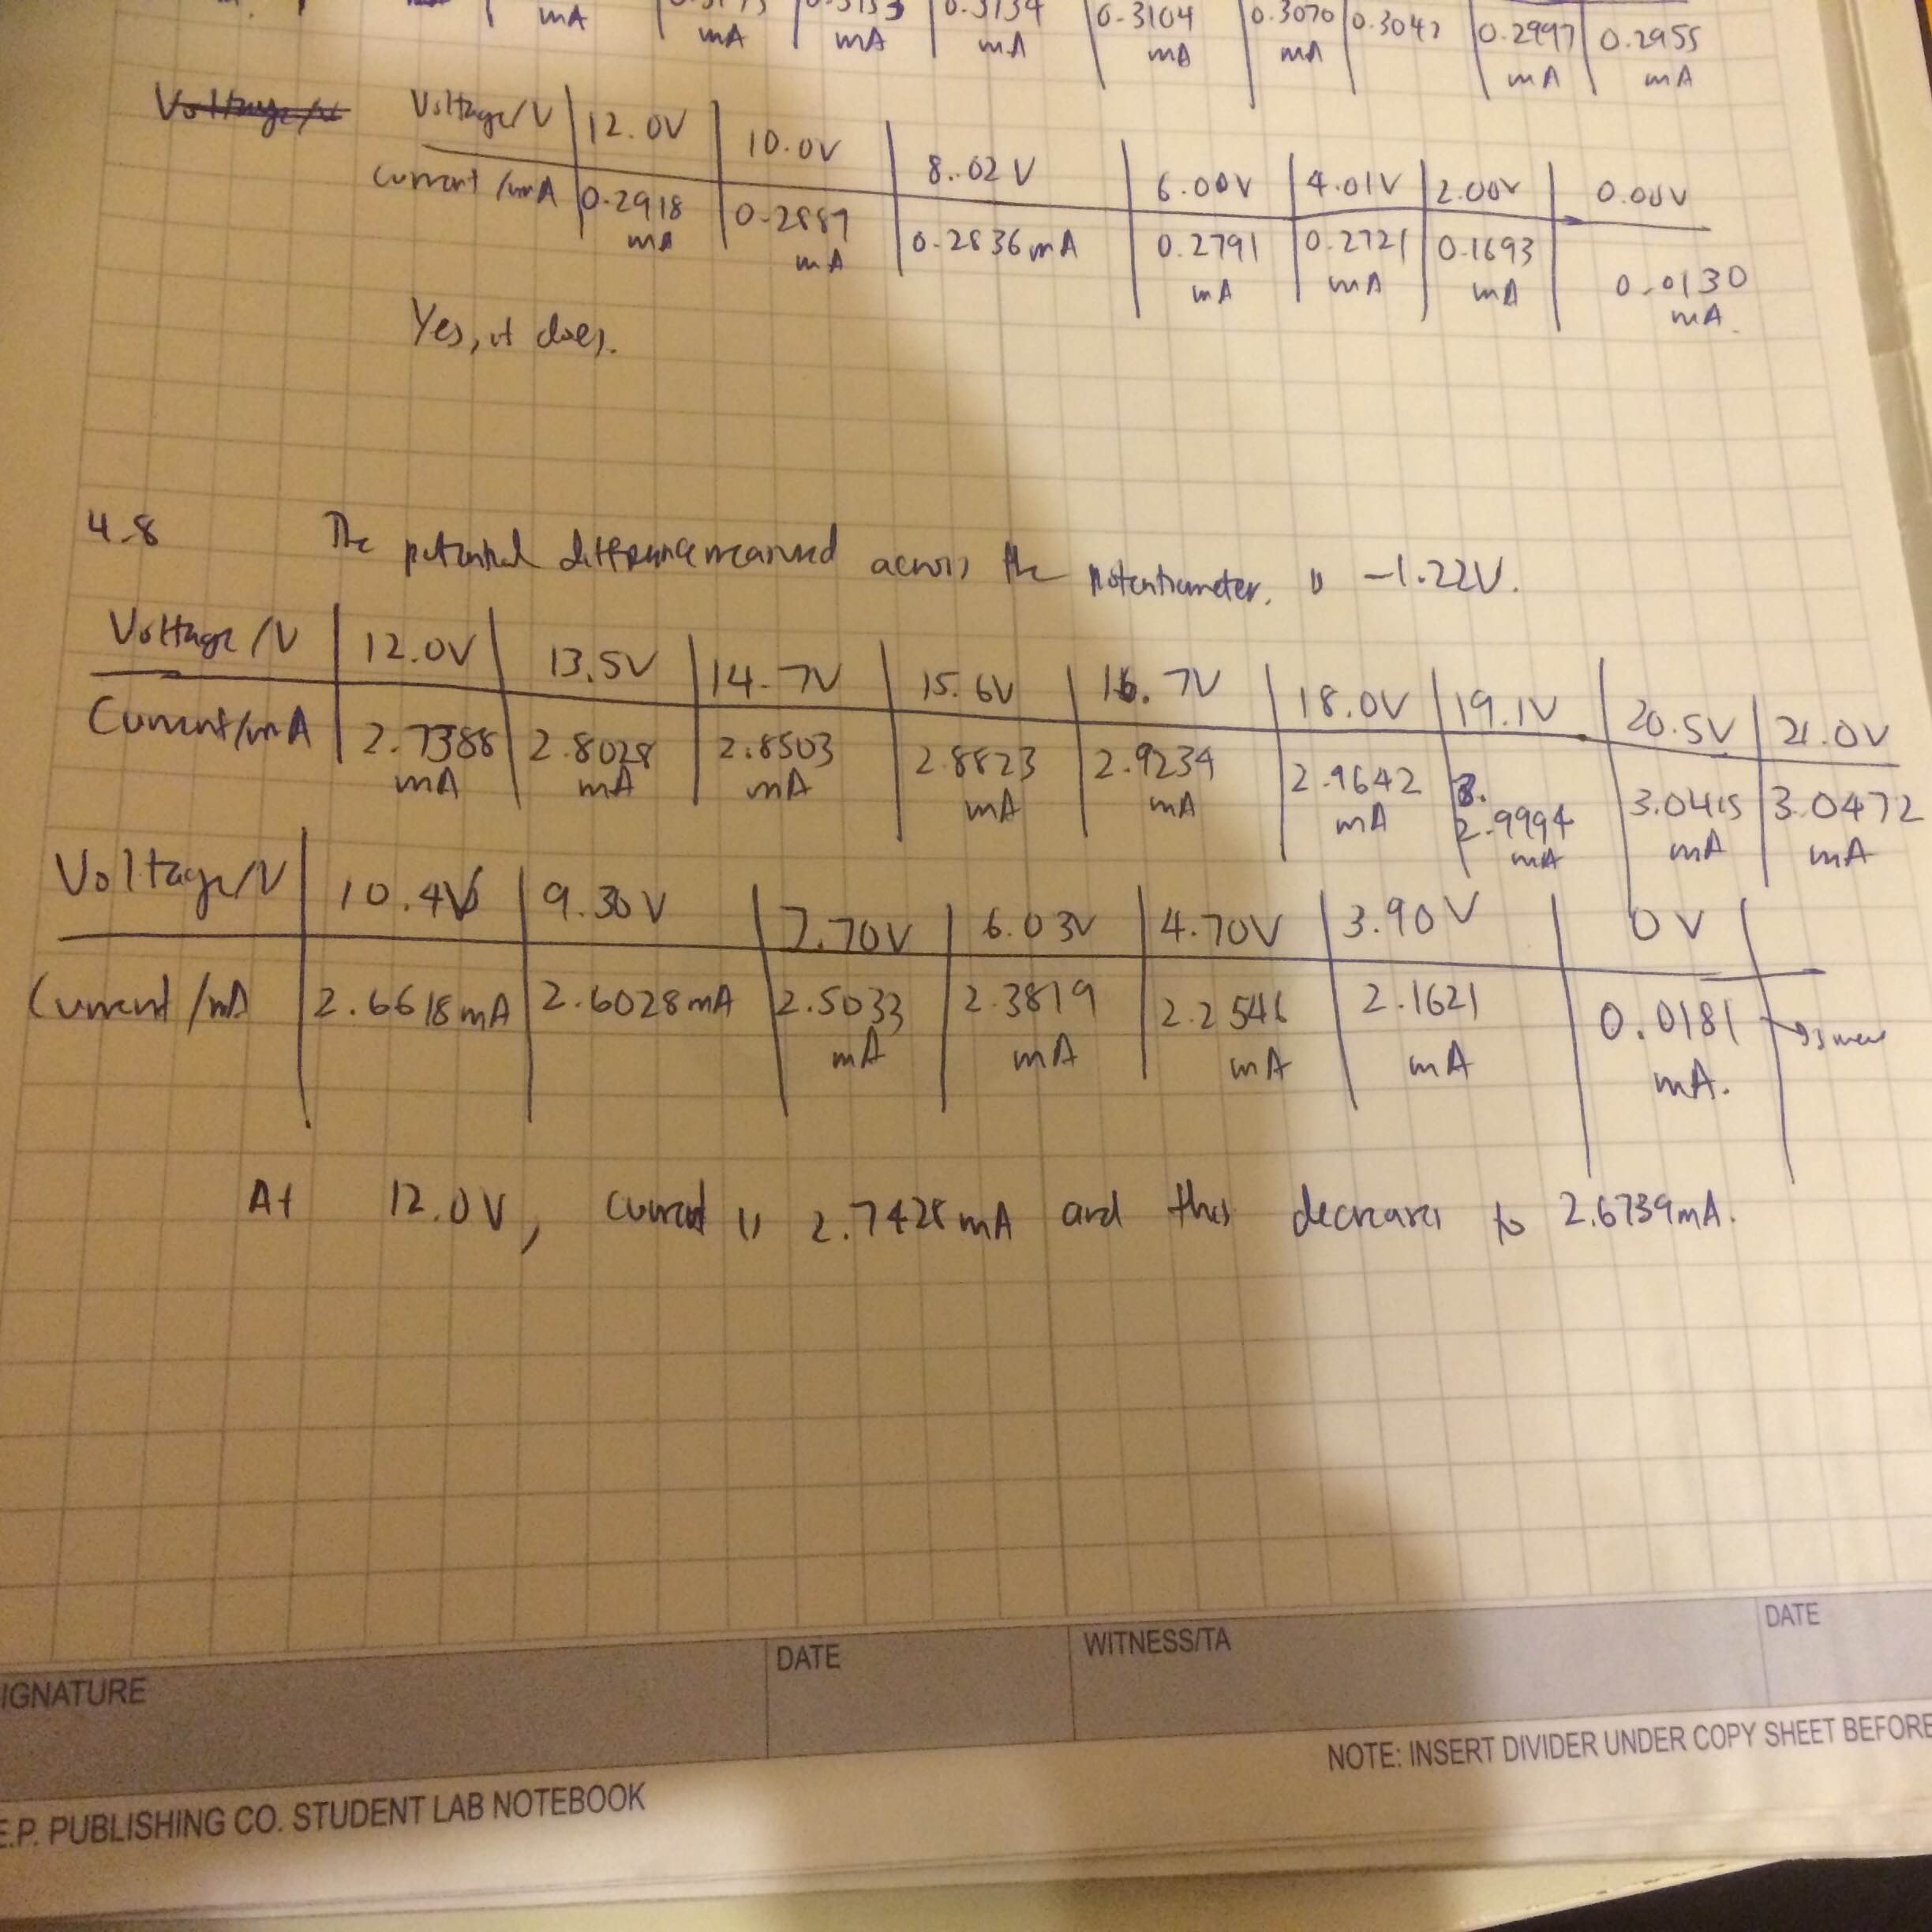 mA mA mA 0.3134 mA 0.3104 mA 0.3070 mA 0.3047 0.2997 mA 0.2955 mA
Voltage/V Voltage/V 12.0V 10.0V 8.02V 6.00V 4.01V 2.00V 0.00V
Current /mA 0.2918 mA 0.2887 mA 0.2836mA 0.2791 mA 0.2721 mA 0.1693 mA 0.0130 mA.
Yes, it does.
4.8 The potential difference measured across the potentiometer. is -1.22V.
Voltage/V 12.0V 13.5V 14.7V 15.6V 16.7V 18.0V 19.1V 20.5V 21.0V
Current/mA 2.7388 mA 2.8028 mA 2.8503 mA 2.8823 mA 2.9234 mA 2.9642 mA 2.9994 mA 3.0415 mA 3.0472 mA
Voltage/V 10.4V 9.30V 7.70V 6.03V 4.70V 3.90V 0V
Current /mA 2.6618mA 2.6028mA 2.5033 mA 2.3819 mA 2.2546 mA 2.1621 mA 0.0181 mA.
At 12.0V, current is 2.7428mA and this decreases to 2.6739mA.
IGNATURE DATE WITNESS/TA DATE
NOTE: INSERT DIVIDER UNDER COPY SHEET BEFORE
E.P. PUBLISHING CO. STUDENT LAB NOTEBOOK